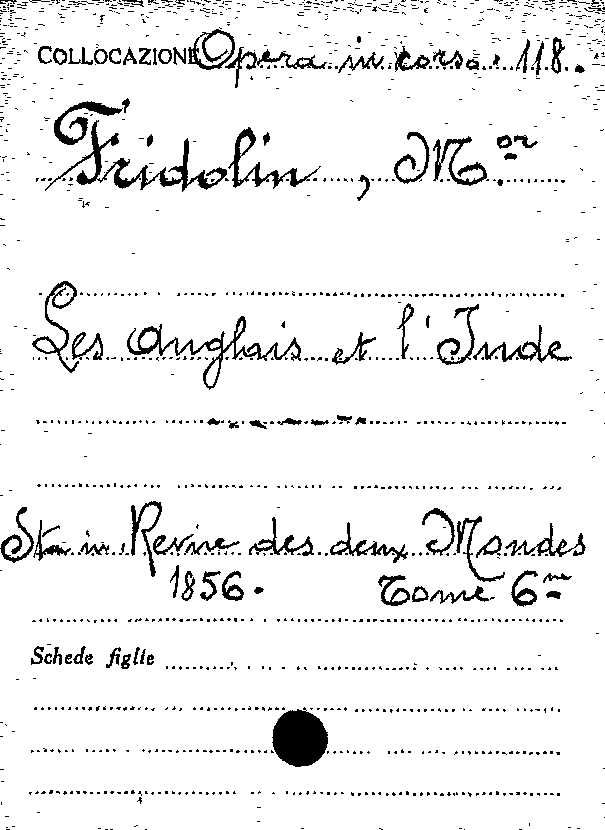 COLLOCAZIONE Opera in corso. 118.
Fridolin, M.or
Les Anglais et l'Inde
Sta in Revue des deux Mondes
1856. Tome 6me
Schede figlie